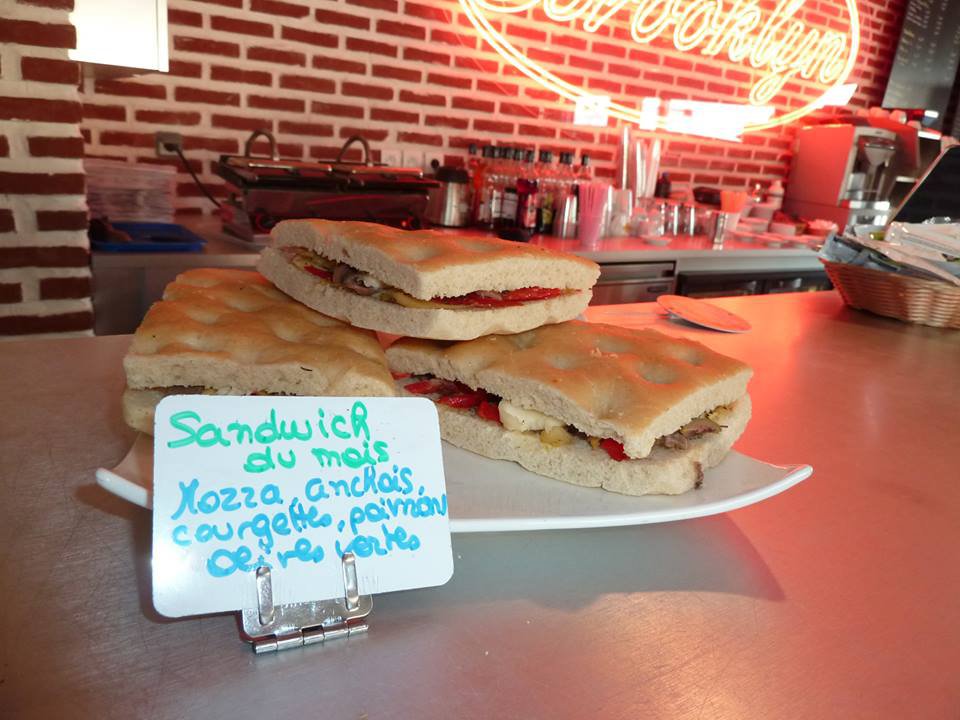 Brooklyn
Sandwich
du mois
Mozza, anchois,
courgettes, poivron
olives vertes